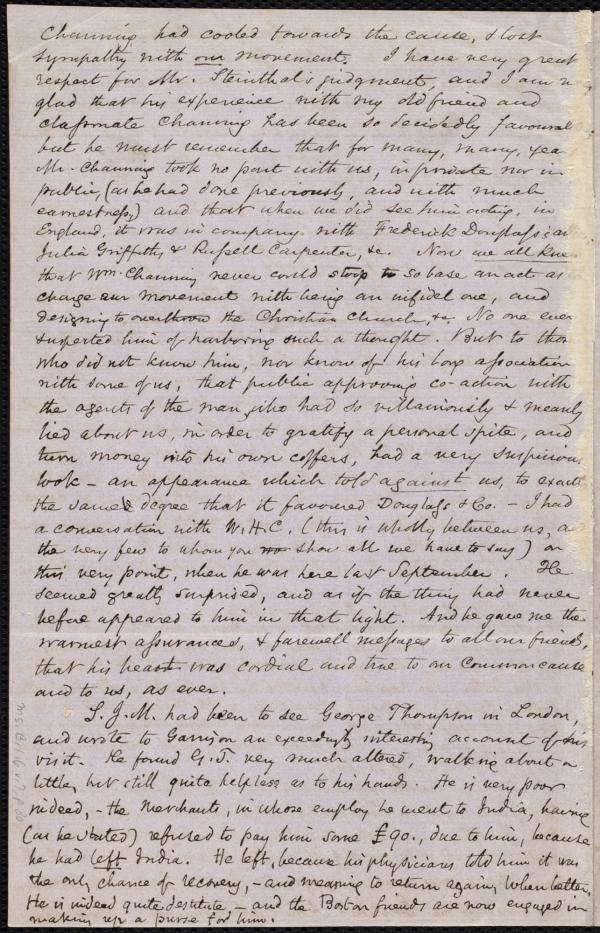 Channing had cooled towards the cause, & lost
sympathy with our movement. I have very great
respect for Mr. Steinthal's judgment, and I am
glad that his experience with my old friend and
classmate Channing has been so decidedly favourab
but he must remember that for many, many, yea
Mr. Channing took no part with us, in private nor in
public, (as he had done previously, and with much
earnestness,) and that when we did see him acting, in
England, it was in company with Frederick Douglass; an
Julia Griffiths & Russell Carpenter, &c. Now we all know
that Wm. Channing never could stoop to so base an act as
charge our movement with being an infidel one, and
designing to overthrow the Christian Church, &c. No one ever
suspected him of harboring such a thought. But to thos
who did not know him, nor know of his long association
with some of us, that public approving co-action with
the agents of the man, who had so villainously & meanly
lied about us, in order to gratify a personal spite, and
turn money into his own coffers, had a very suspicious
look – an appearance which told against us, to exactl
the same degree that it favoured Douglass & Co. – I had
a conversation with W.H.C. (this is wholly between us, a
the very few to whom you show all we have to say) on
this very point, when he was here last September. He
seemed greatly surprised, and as if the thing had never
before appeared to him in that light. And he gave me the
warmest assurances, & farewell messages to all our friends,
that his heart was cordial and true to our common cause
and to us, as ever.
S.J.M. had been to see George Thompson in London,
and wrote to Garrison an exceedingly interesting account of his
visit. He found G.T. very much altered, walking about a
little, but still quite helpless as to his hands. He is very poor
indeed, – the Merchants, in whose employ he went to India, having
(as he stated) refused to pay him some £90., due to him, because
he had left India. He left, because his physicians told him it was
the only chance of recovery, – and meaning to return again, when better.
He is indeed quite destitute – and the Boston friends are now engaged in
making up a purse for him.